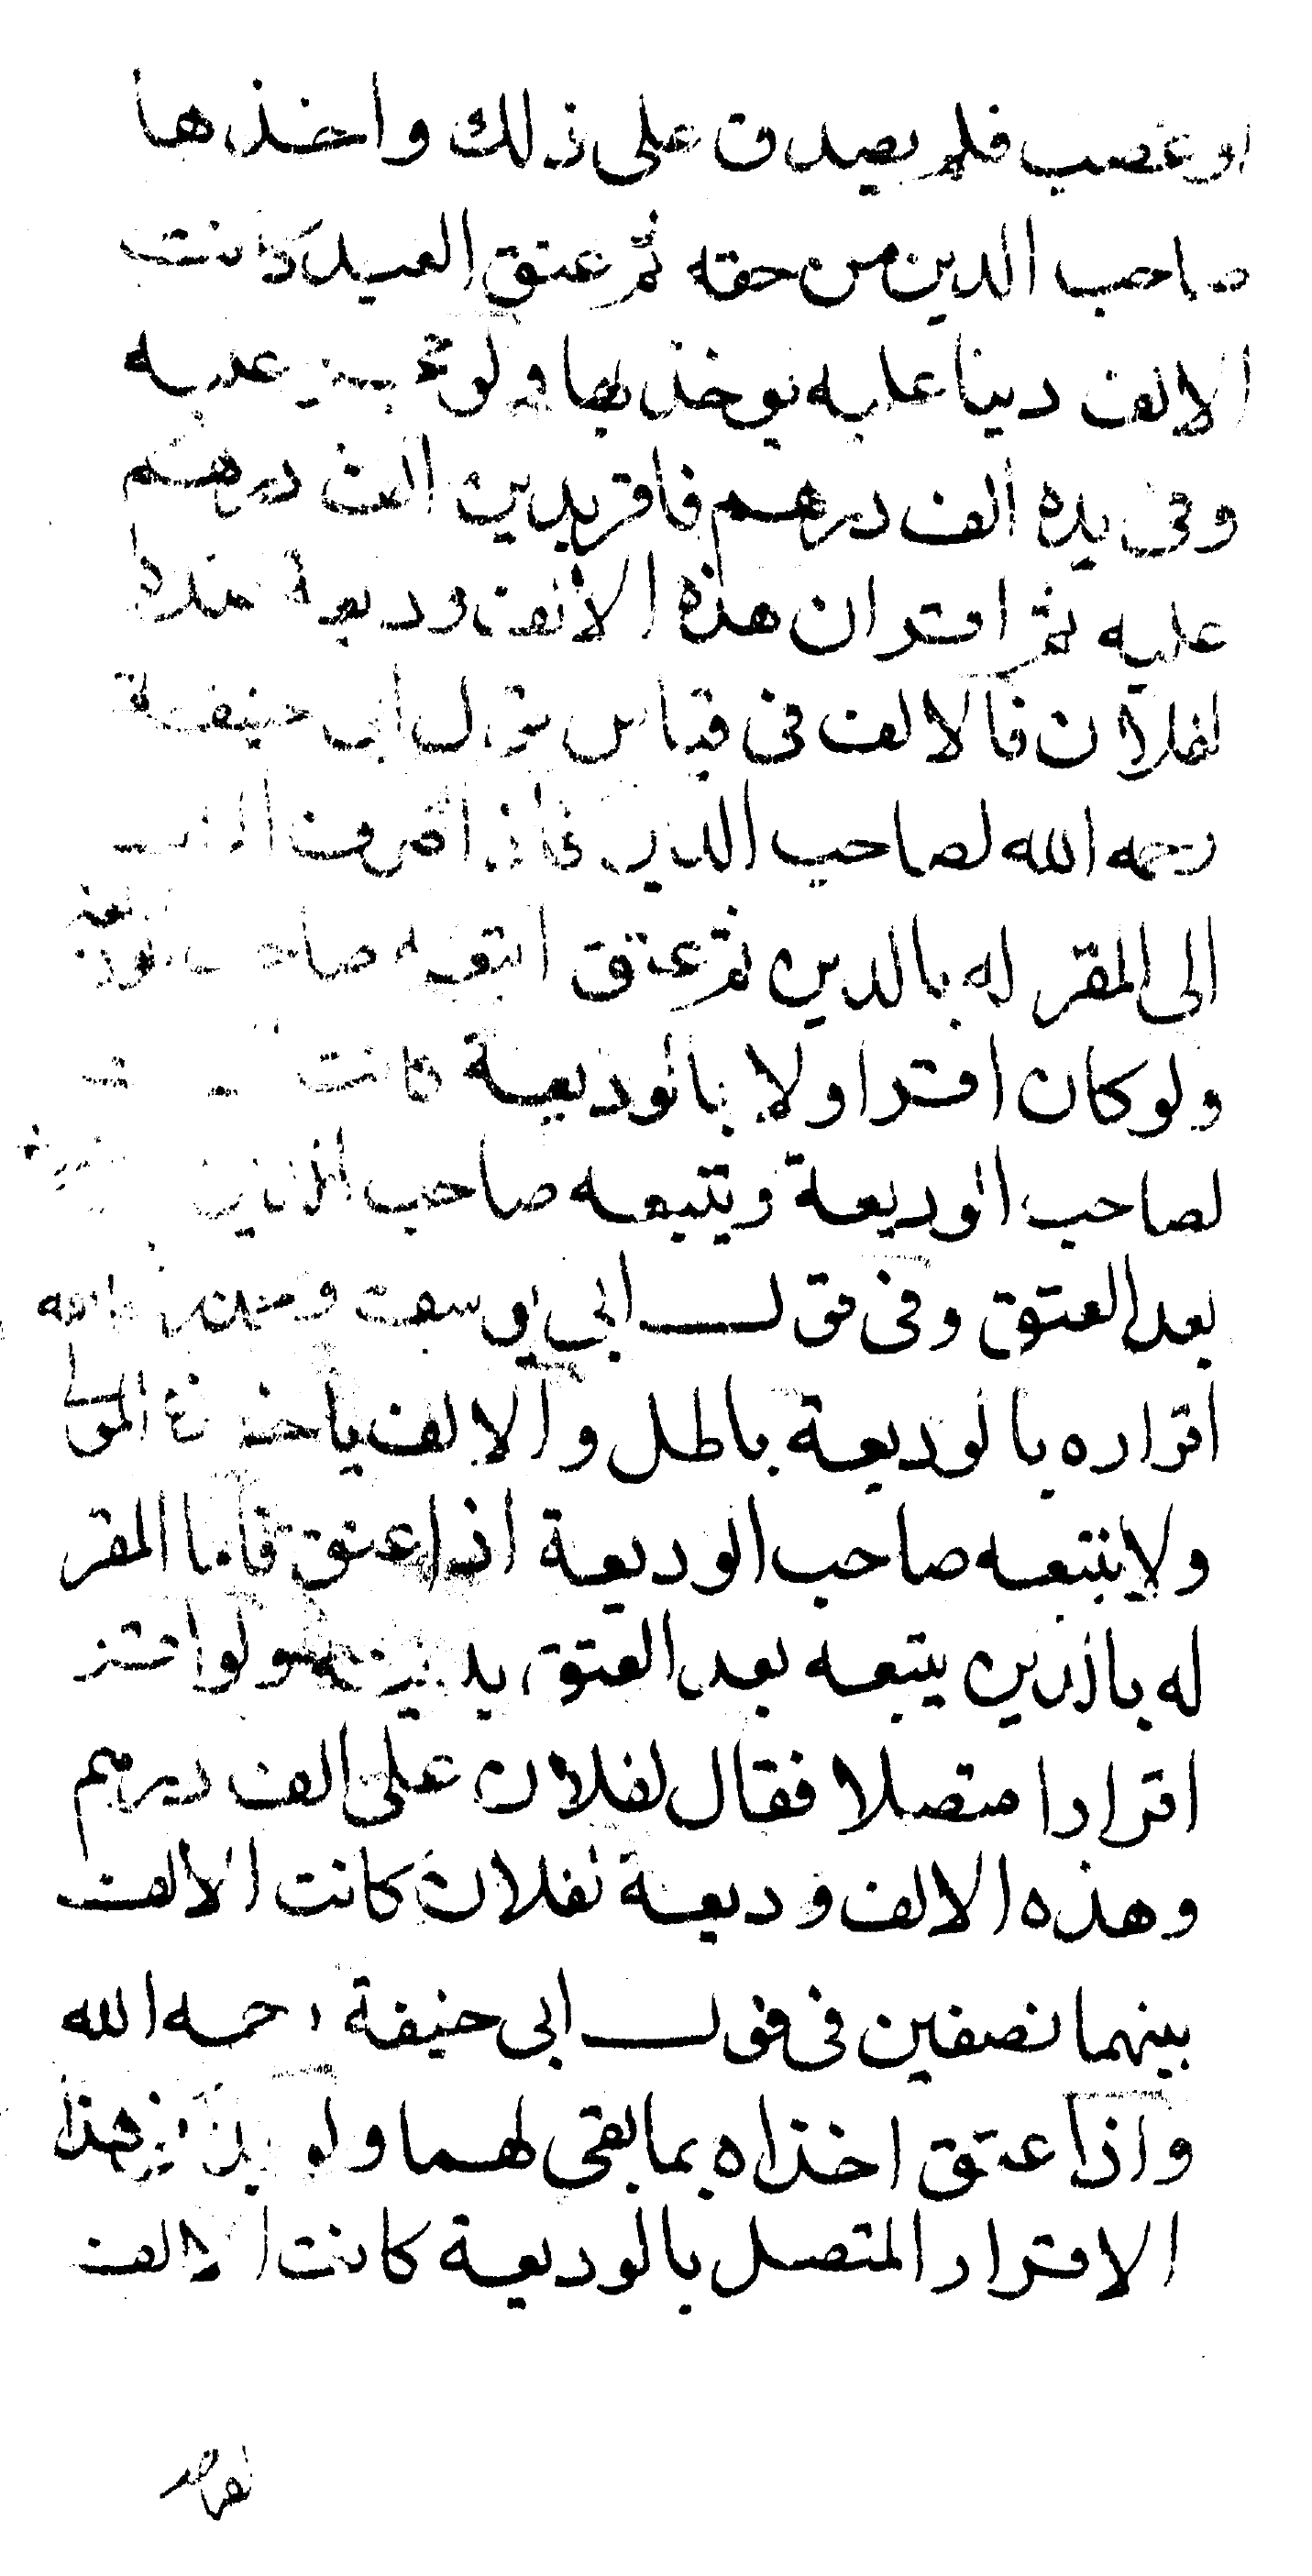 او غصب فلم يصدق على ذلك واخذها
صاحب الدين من حقه ثم عتق العبد كانت
الالف دينا عليه يوخذ بها ولو حجر عليه
وفى يده الف درهم فاقر بدين الف درهم
عليه ثم اقر ان هذه الالف وديعة عنده
لفلان فالالف فى قياس قول ابى حنيفة
رحمه الله لصاحب الدين فاذا صرف الالف
الى المقر له بالدين ثم عتق اتبعه صاحب الوديعة
ولو كان اقر اولا بالوديعة كانت
لصاحب الوديعة ويتبعه صاحب الدين
بعد العتق وفى قول ابى يوسف ومحمد رحمهما الله
اقراره بالوديعة باطل والالف ياخذها المولى
ولا يتبعه صاحب الوديعة اذا عتق فاما المقر
له بالدين يتبعه بعد العتق بدينه ولو اقر
اقرارا متصلا فقال لفلان على الف درهم
وهذه الالف وديعة لفلان كانت الالف
بينهما نصفين فى قول ابى حنيفة رحمه الله
واذا عتق اخذاه بما بقى لهما ولو هذا
الاقرار المتصل بالوديعة كانت الالف